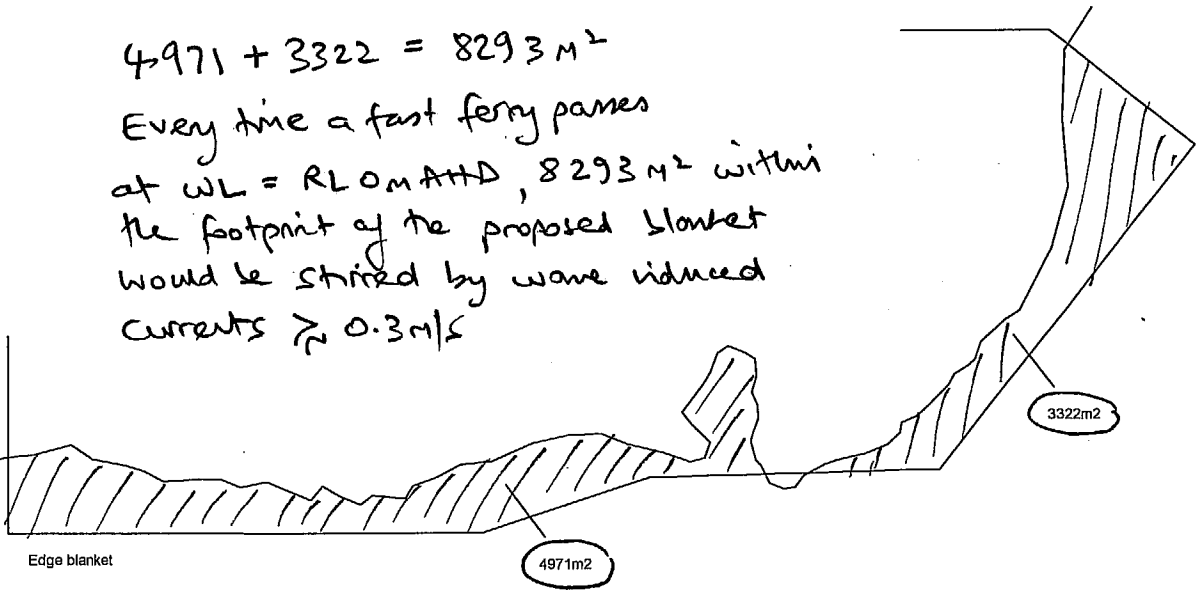 4971 + 3322 = 8293 M²
Every time a fast ferry passes
at WL = RL 0m AHD, 8293 M² within
the footprint of the proposed blanket
would be stirred by wave induced
currents ≳ 0.3 m/s
3322m2
Edge blanket
4971m2